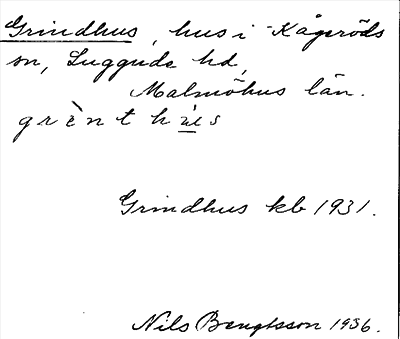 Grindhus, hus i Kågeröds
sn, Luggude hd,
Malmöhus län.
grènt hùs
Grindhus kb 1931.
Nils Bengtsson 1936.